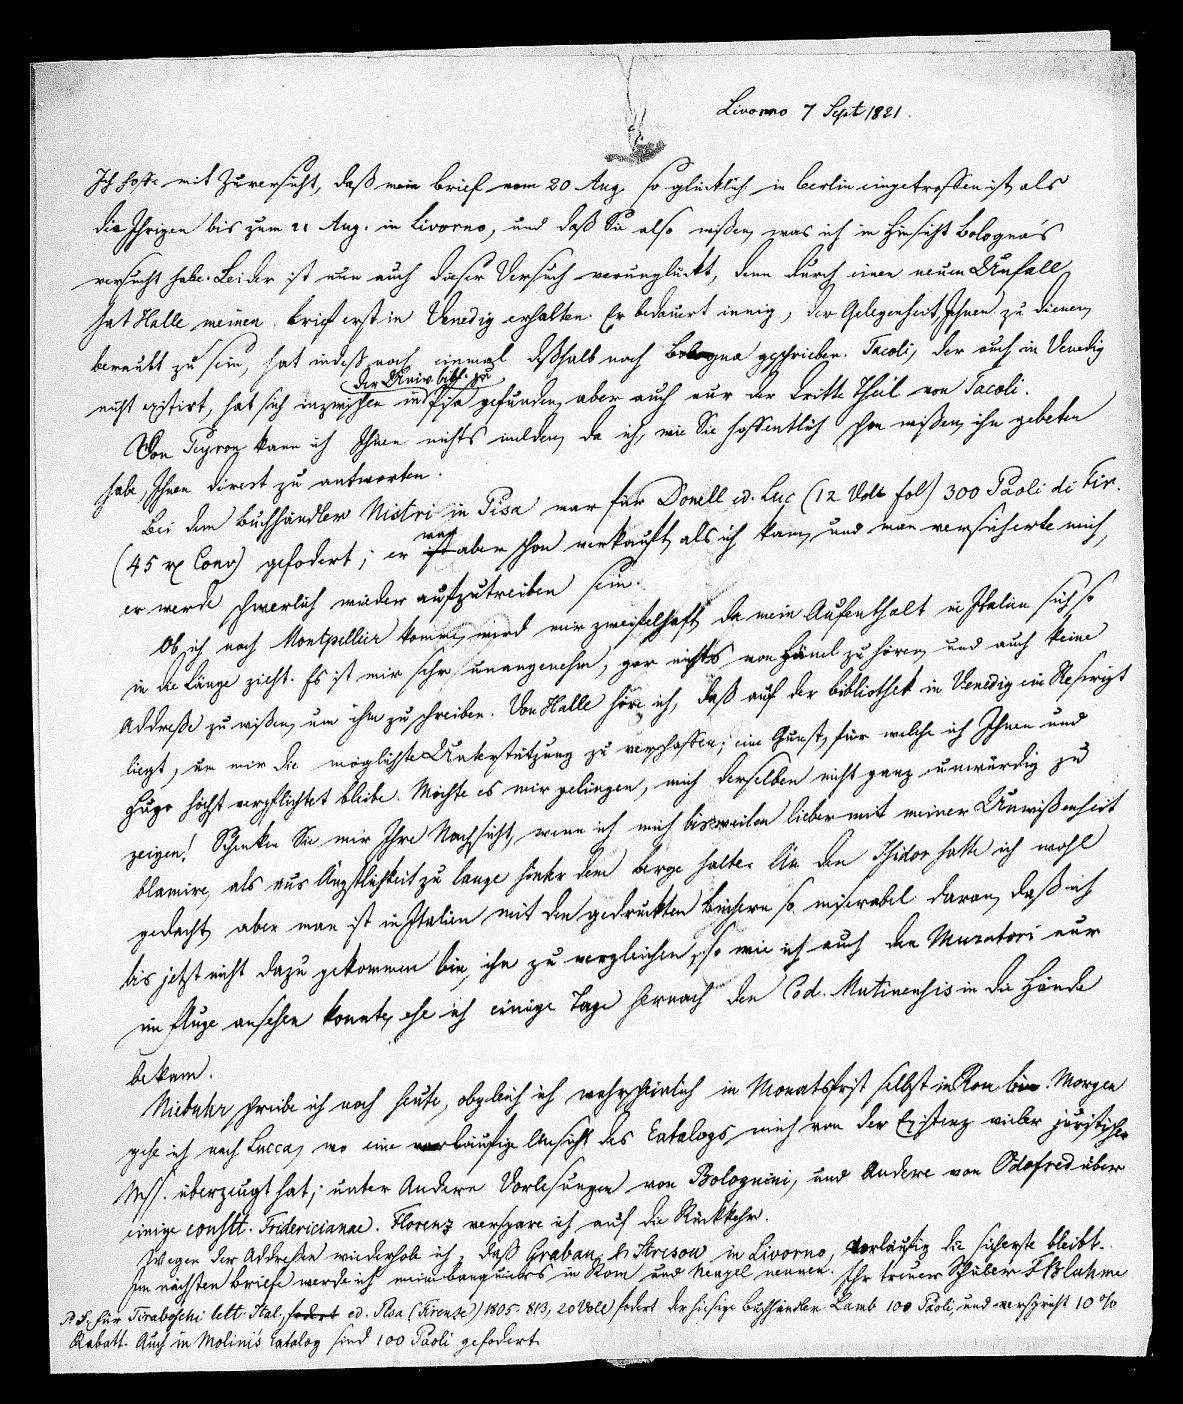 Livorno 7 Sept 1821.
Ich hoffe mit Zuversicht, daß mein brief vom 20 Aug. so glücklich in berlin eingetroffen ist, als
die Ihrigen bis zum 21 Aug. in Livorno, und daß Sie also wißen, was ich in Hinsicht Bologna's
versucht habe. Leider ist nun auch dieser Versuch verunglückt, denn durch einen neuen Unfall
hat Halle meinen brief erst in Venedig erhalten. Er bedauert innig, der Gelegenheit, Ihnen zu dienen,
beraubt zu sein, hat indeß noch einmal deßhalb nach Bologna geschrieben. Tacoli, der auch in Venedig
der Univ. bibl. zu
nicht existirt, hat sich inzwischen in Pisa gefunden, aber auch nur der dritte Theil von Tacoli.
Von Peyron kann ich Ihnen nichts melden, da ich, wie Sie hoffentlich schon wißen, ihn gebeten
habe, Ihnen direct zu antworten.
Bei dem buchhändler Nistri in Pisa war für Donell ed. Luc (12 Voll fol) 300 Paoli di Fir.
(45 rx Conv) gefodert; er
war
ist aber schon verkauft, als ich kam, und man versicherte mich,
er werde schwerlich wieder aufzutreiben sein.
Ob ich nach Montpellier komme, wird mir zweifelhaft, da mein Aufenthalt in Italien sich so
in die Länge zieht. Es ist mir sehr unangenehm, gar nichts von Hänel zu hören, und auch keine
Addreße zu wißen, um ihm zu schreiben. Von Halle höre ich, daß auf der bibliothek in Venedig ein Rescript
liegt, um mir die möglichste Unterstützung zu verschaffen; eine Gunst, für welche ich Ihnen und
Hugo höchst verpflichtet bleibe. Möchte es mir gelingen, mich derselben nicht ganz unwürdig zu
zeigen! Schenken Sie mir Ihre Nachsicht, wenn ich mich bisweilen lieber mit meiner Unwißenheit
blamire, als aus Ängstlichkeit zu lange hinter dem berge halte. An den Isidor hatte ich wohl
gedacht, aber man ist in Italien mit den gedruckten büchern so miserabel daran, daß ich
bis jetzt nicht dazu gekommen bin, ihn zu vergleichen, so wie ich auch den Muratori nur
im fluge ansehen konnte, ehe ich einige Tage hernach den Cod. Mutinensis in die Hände
bekam.
Niebuhr schreibe ich noch heute, obgleich ich wahrscheinlich in Monatsfrist selbst in Rom bin. Morgen
gehe ich nach Lucca, wo eine vorläufige Ansicht des Catalogs mich von der Existenz vieler juristischer
Mss. überzeugt hat; unter Andern Vorlesungen von Bolognini, und Andere von Odofred über
einige constt. Fridericianae. Florenz verspare ich auf die Rückkehr.
Wegen der Addreßen wiederhole ich, daß Grabau & Stresow in Livorno, vorläufig die sicherste bleibt.
Im nächsten briefe werde ich meine banquiers in Rom und Neapel nennen. Ihr treuer Schüler F Bluhme
P. S. für Tiraboschi lett. Ital., fodert ed. Pisa (Firenze) 1805-813, 20 Voll) fodert der hiesige buchhändler Lamb 100 Paoli, und verspricht 10%
Rabatt. Auch in Molini's Catalog sind 100 Paoli gefodert.